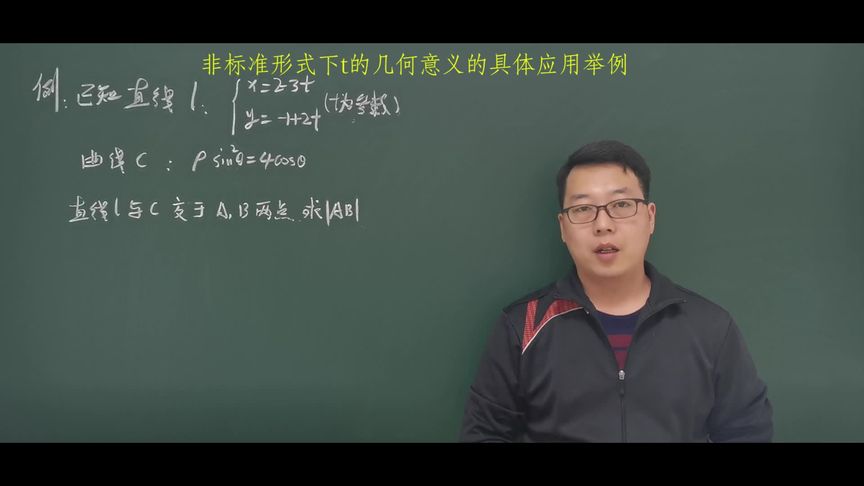 非标准形式下t的几何意义的具体应用举例
例：已知直线 l：{x=2-3t
y=-1+2t (t为参数)
曲线 C：ρsin²θ=4cosθ
直线 l 与 C 交于 A,B 两点 求|AB|